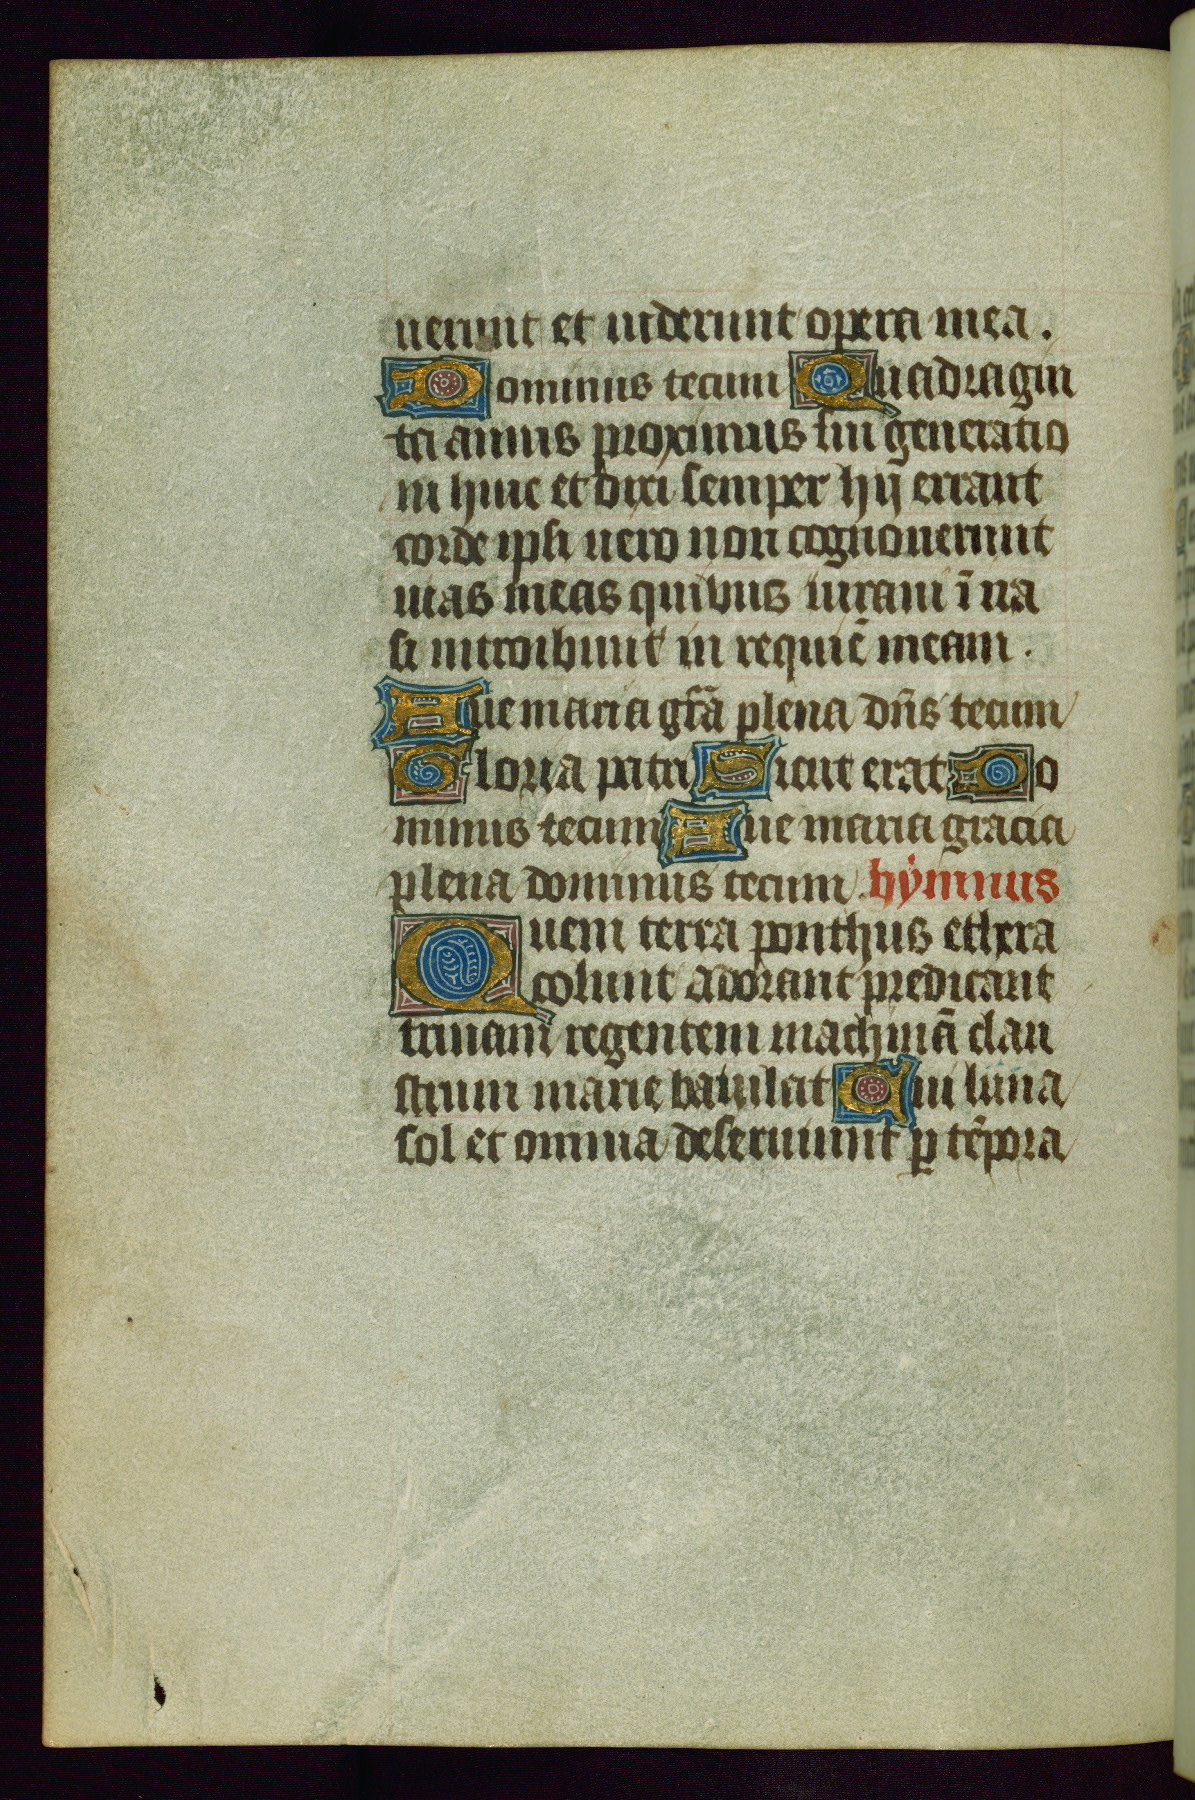 uerunt et uiderunt opera mea.
Dominus tecum Quadragin
ta annis proximus fui generatio
ni huic et dixi semper hij errant
corde ipsi uero non cognouerunt
uias meas quibus iuraui ī ira
si introibunt in requiē meam.
Aue maria grā̄ plena dn̄s tecum
Gloria patri Sicut erat Do
minus tecum Aue maria gracia
plena dominus tecum. hẏmnus
Quem terra ponthus ethera
colunt adorant predicant
trinam regentem machinā clau
strum marie baiulat Cui luna
sol et omnia deseruiunt ꝑ tēpora